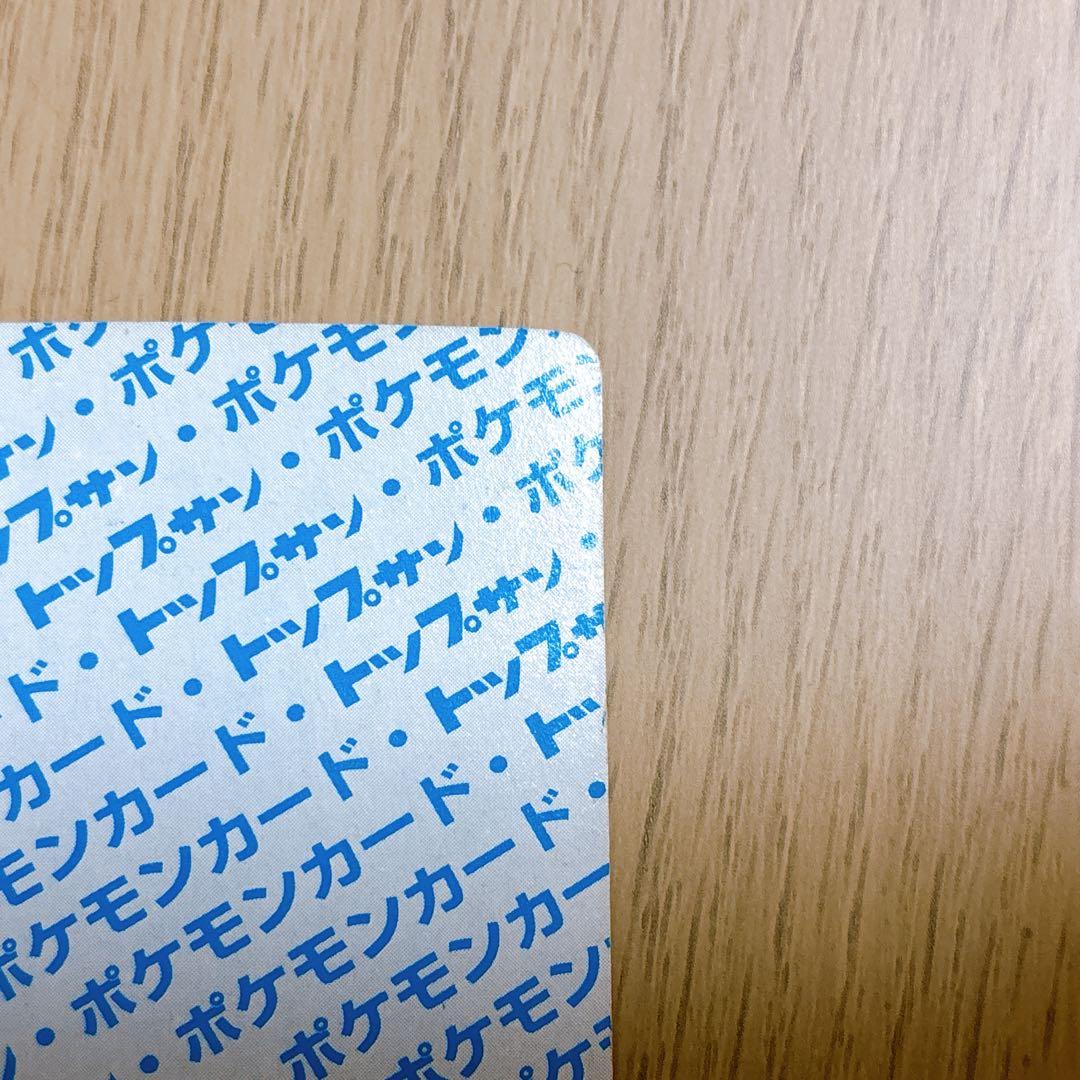 ポケ
ン・ポケ
プサン・ポケモ
トップサン・ポケモン
ド・トップサン・ポケモ
カード・トップサン・ポケ
モンカード・トップサン・
ポケモンカード・トップサ
・ポケモンカード・トッ
・ポケモンカード・
ポケモンカー
ポケモン
ケ